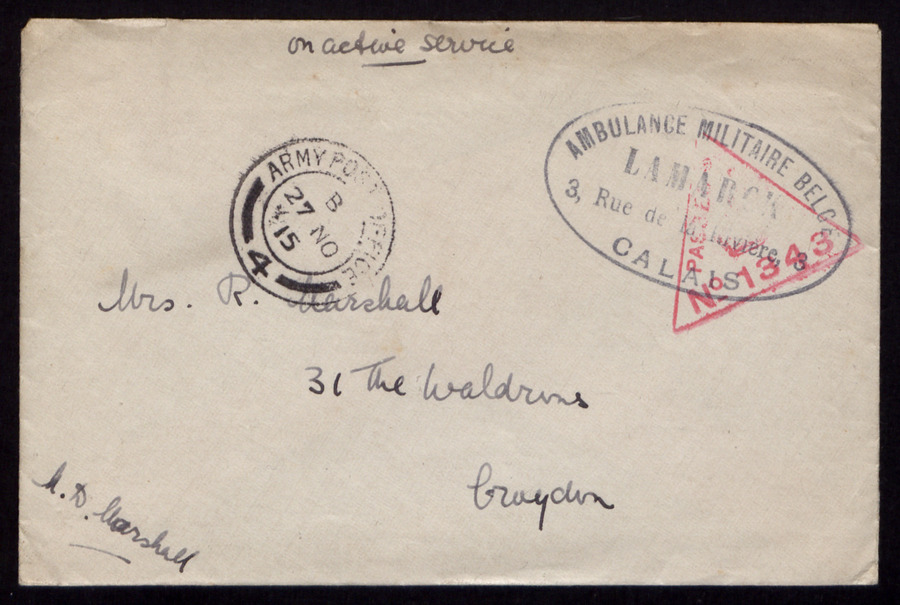 on active service
ARMY POST OFFICE
B
27 NO
15
4
AMBULANCE MILITAIRE BELGE
LAMARCK
3, Rue de la Rivière, 3
CALAIS
PASSED
No 1343
Mrs. R. Marshall
31 The Waldrons
Croydon
Marshall